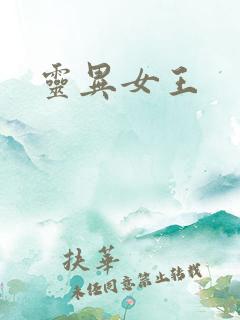 靈異女王
扶華
未經同意禁止轉載